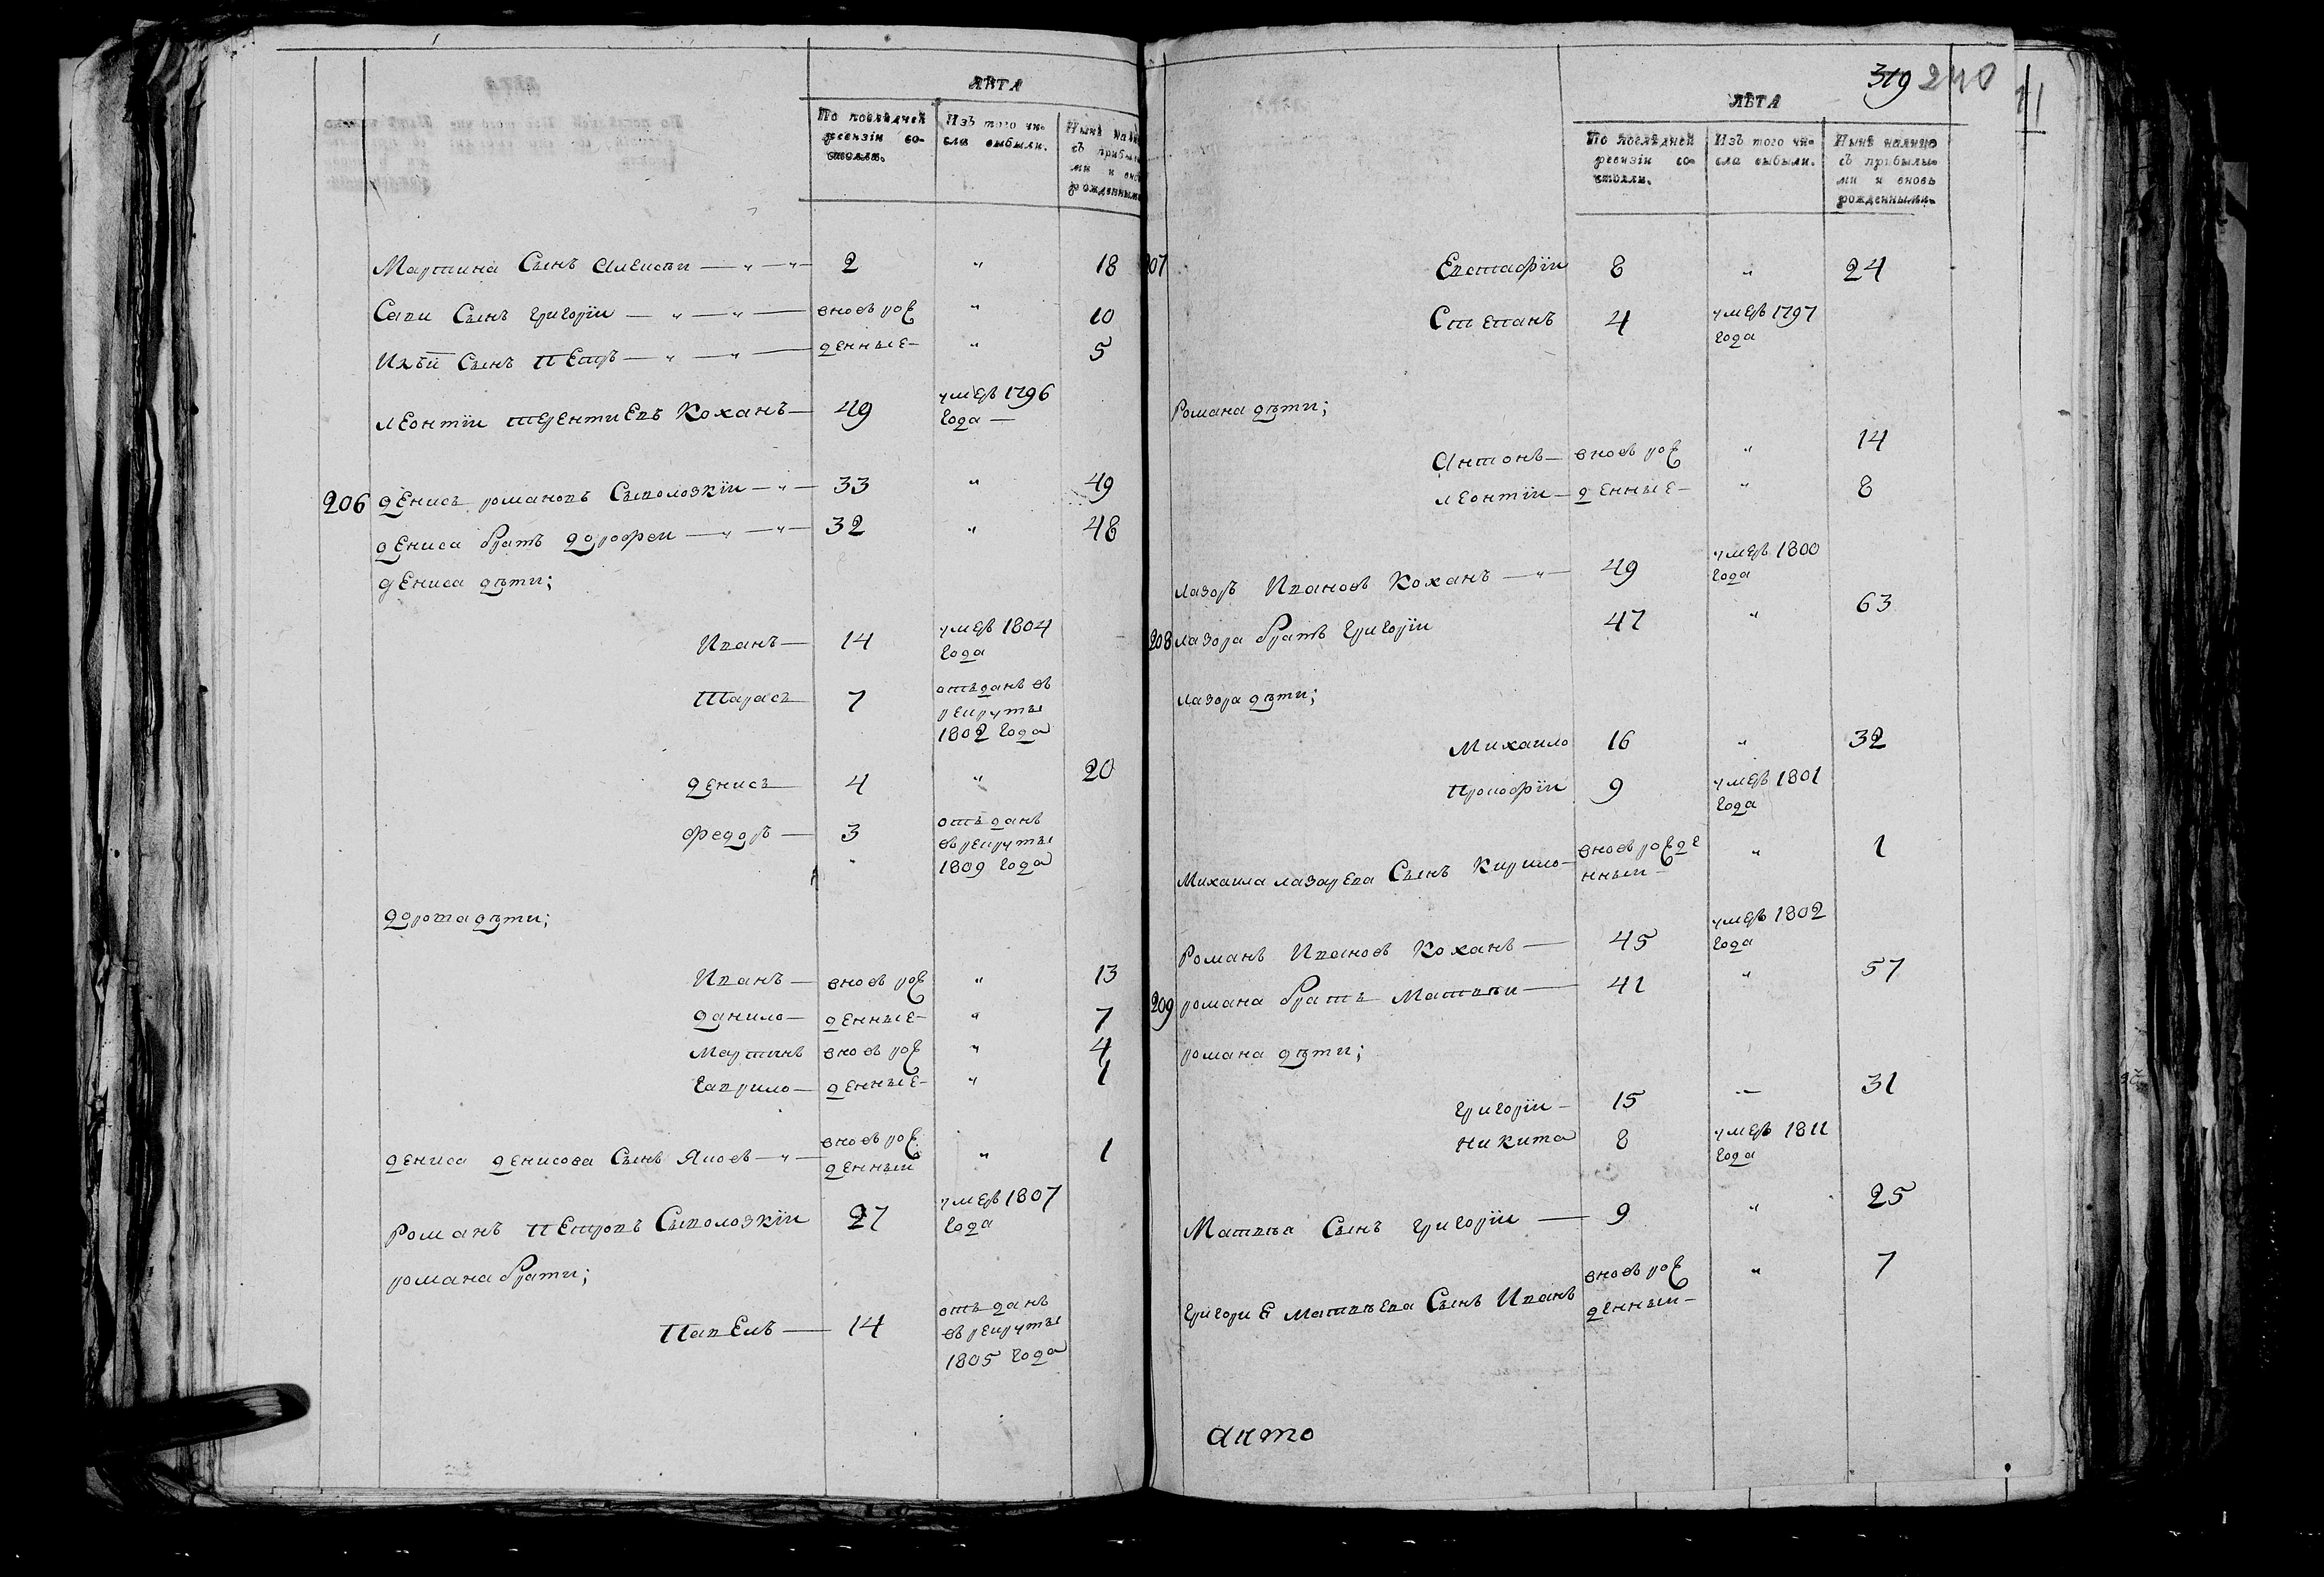 ЛѢТА
По послѣдней ревизіи со-стояли.
Изъ того чи-сла выбыли.
Нынѣ
Мартина Сынъ Алексѣи 2 " 18
Савы Сынъ григорїи вновь рож " 10
Ильи Сынъ Петръ денные " 5
леонтїи терентиевъ Коханъ 49 умеръ 1796
года
206 денисъ романовъ Сыволозкїи 33 " 49
дениса братъ дорофеи 32 " 48
дениса дѣти;
Иванъ 14 умеръ 1804
года
Тарасъ 7 отъданъ въ
рекруты
1802 года
денисъ 4 " 20
федоръ 3 отъданъ
въ рекруты
1809 года
дорофа дѣти;
Иванъ вновь рож " 13
данило денные " 7
Мартинъ вновь рож " 4
гаврило денные " 1
дениса денисова Сынъ Яковъ вновь рож " 1
денныи
Романъ Петровъ Сыволозкїи 27 умеръ 1807
года
романа брати;
Павелъ 14 отъданъ
въ рекруты
1805 года
319 240
ЛѢТА
По послѣдней ревизіи со-стояли.
Изъ того чи-сла выбыли.
Нынѣ налицо съ прибылы-ми и вновь рожденными.
207 Евстафїи 8 " 24
Степанъ 4 умеръ 1797
года
Романа дѣти;
Антонъ вновь рож " 14
леонтїи денные " 8
лазоръ Ивановъ Коханъ 49 умеръ 1800
года
208 лазора братъ григорїи 47 " 63
лазора дѣти;
Михаило 16 " 32
Прокофїи 9 умеръ 1801
года
Михаила лазарева Сынъ Кирило вновь рожде " 1
нныи
Романъ Ивановъ Коханъ 45 умеръ 1802
года
209 романа братъ Матвѣи 41 " 57
романа дѣти;
григорїи 15 — 31
никита 8 умеръ 1811
года
Матвѣя Сынъ григорїи 9 " 25
григорие Матвѣева Сынъ Иванъ вновь рож " 7
денныи